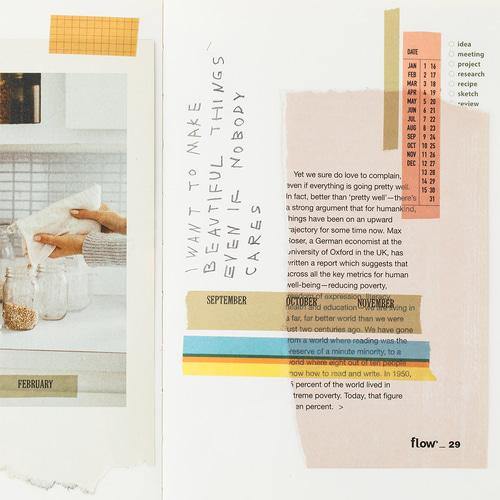 FEBRUARY
I WANT TO MAKE
BEAUTIFUL THINGS
EVEN IF NOBODY
CARES
DATE
JAN 1 16
FEB 2 17
MAR 3 18
APR 4 19
MAY 5 20
JUN 6 21
JUL 7 22
AUG 8 23
SEP 9 24
OCT 10 25
NOV 11 26
DEC 12 27
13 28
14 29
15 30
31
idea
meeting
project
research
recipe
sketch
review
Yet we sure do love to complain,
even if everything is going pretty well.
In fact, better than 'pretty well'—there's
a strong argument that for humankind,
things have been on an upward
trajectory for some time now. Max
Roser, a German economist at the
University of Oxford in the UK, has
written a report which suggests that
across all the key metrics for human
well-being—reducing poverty,
freedom of expression, literacy,
health and education—we are living in
a far, far better world than we were
just two centuries ago. We have gone
from a world where reading was the
preserve of a minute minority, to a
world where eight out of ten people
know how to read and write. In 1950,
percent of the world lived in
extreme poverty. Today, that figure
ten percent. >
SEPTEMBER OCTOBER NOVEMBER
flow_ 29